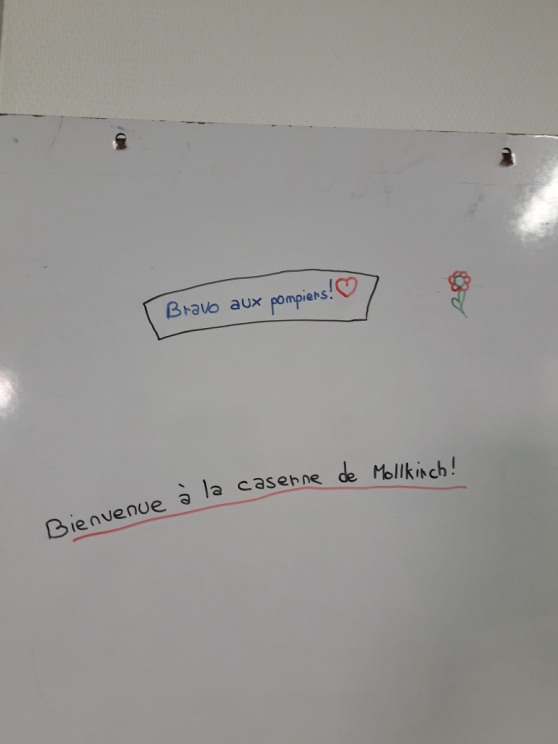 Bravo aux pompiers!
Bienvenue à la caserne de Mollkirch!